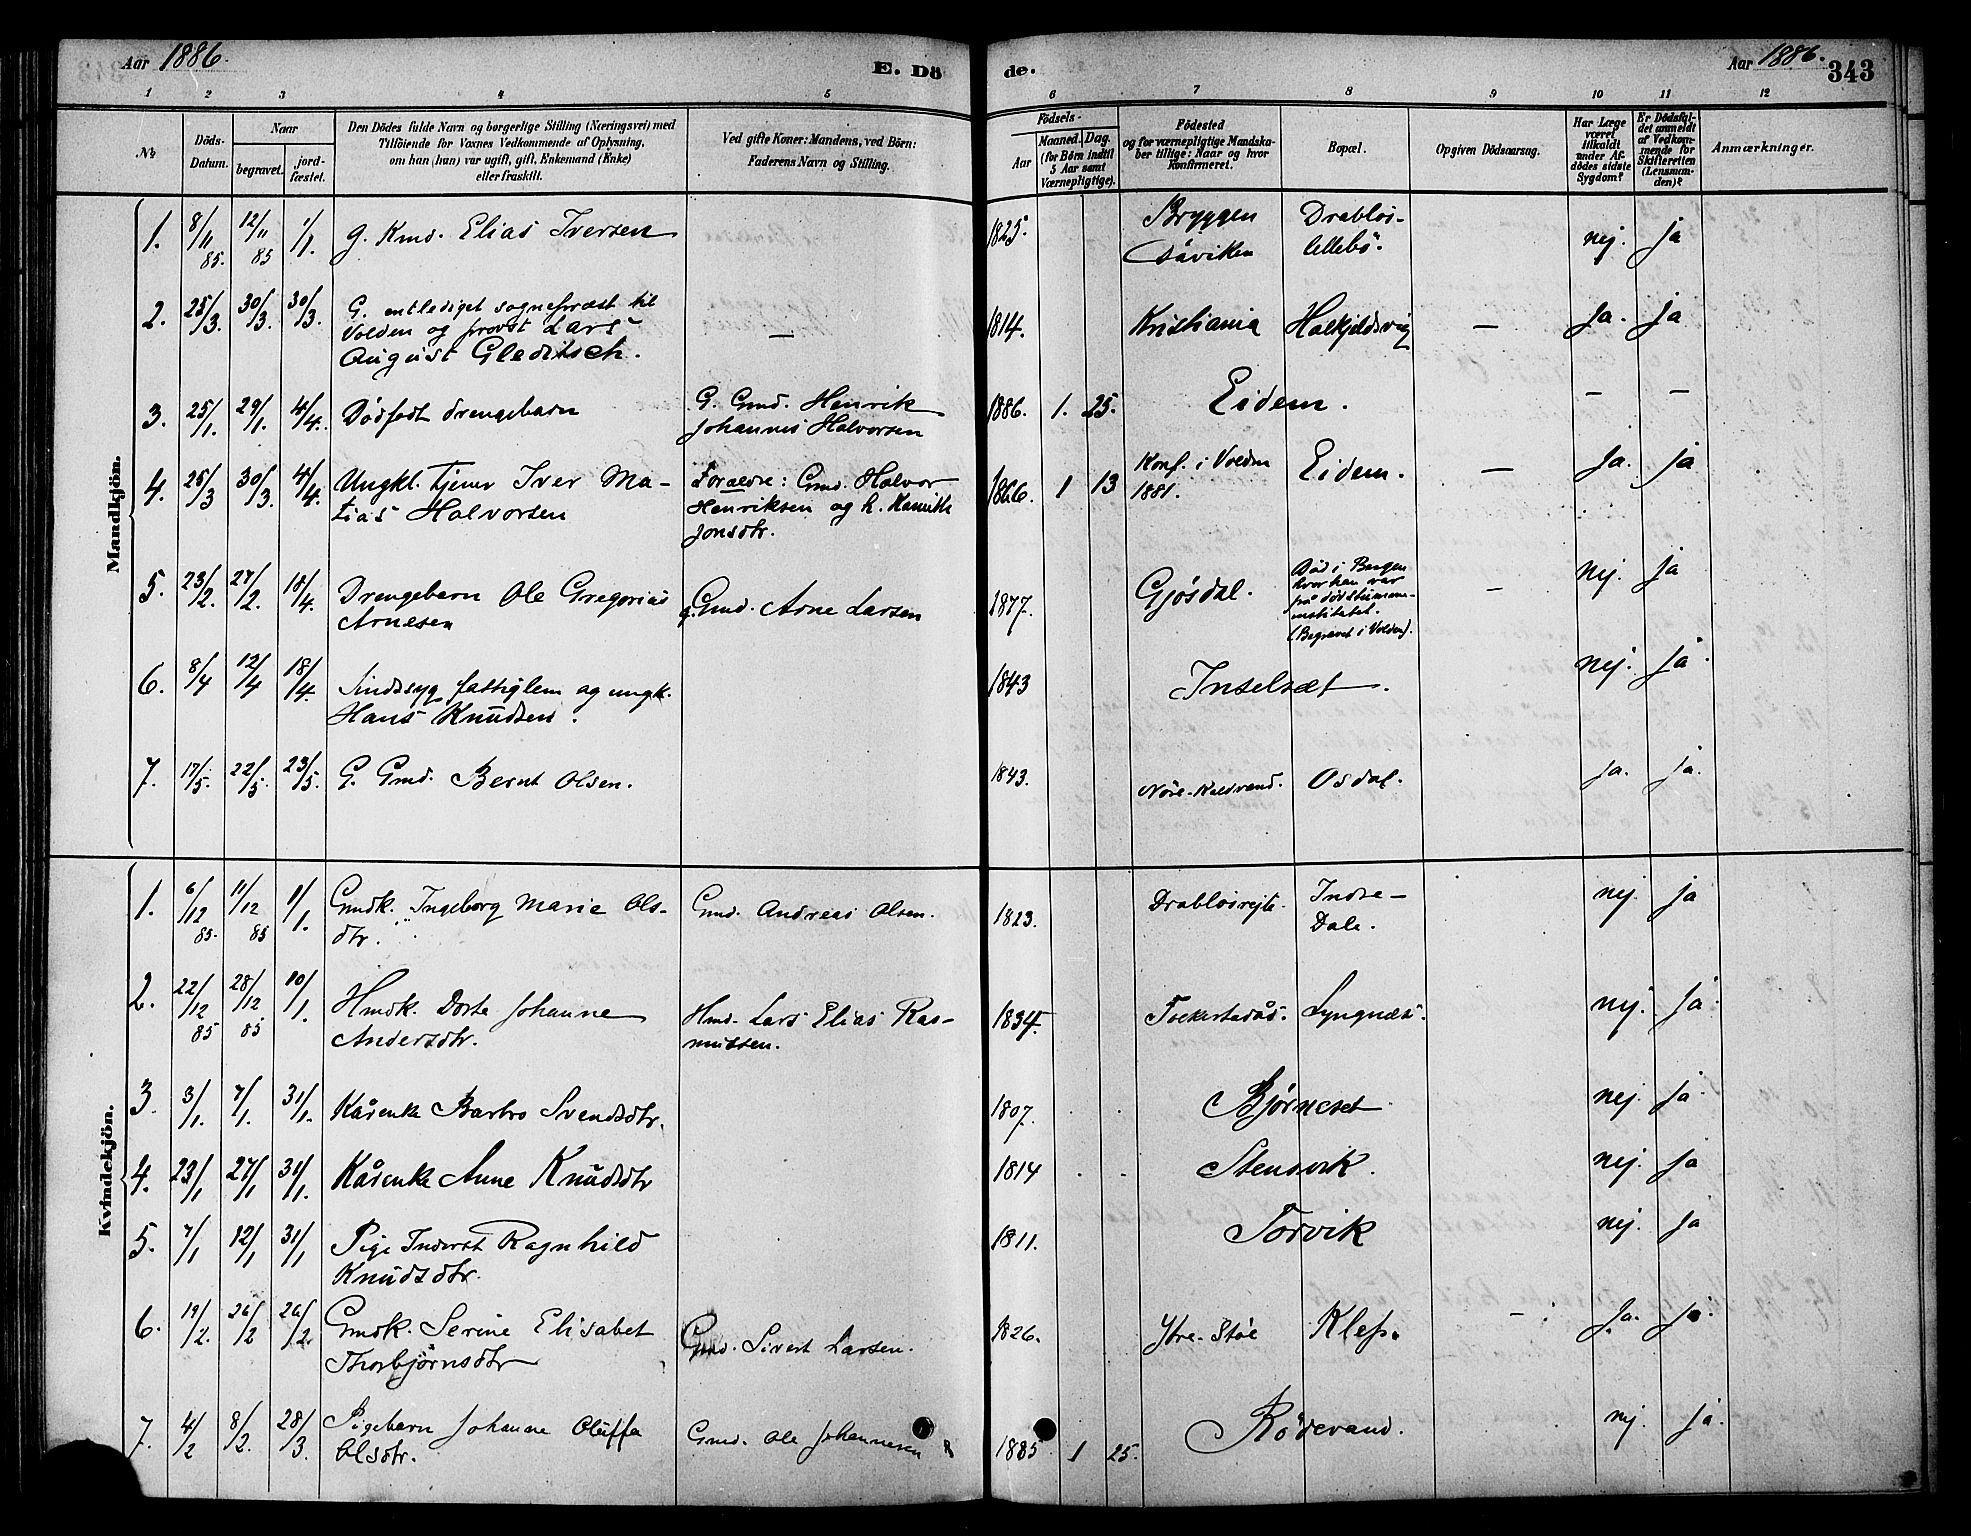 Aar 1886.
E. Dö
de.
Aar 1886.
343
1 2 3 4 5 6 7 8 9 10 11 12
No
Döds-
Datum.
Naar
begravet.
jord-
fæstet.
Den Dödes fulde Navn og borgerlige Stilling (Næringsvei) med
Tilföiende for Voxnes Vedkommende af Oplysning,
om han (hun) var ugift, gift, Enkemand (Enke)
eller fraskilt.
Ved gifte Koner: Mandens, ved Börn:
Faderens Navn og Stilling.
Födsels-
Aar
Maaned. Dag.
(for Börn indtil
5 Aar samt
Værnepligtige).
Födested
og for værnepligtige Mandska-
ber tillige: Naar og hvor
konfirmeret.
Bopæl.
Opgiven Dödsaarsag.
Har Læge
været
tilkaldt
under Af-
dödes sidste
Sygdom?
Er Dödsfal-
det anmeldt
af Vedkom-
mende for
Skifteretten
(Lensman-
den)?
Anmærkninger.
Mandkjön.
1. 8/11 85. 12/11 85 1/1 g. Kmd. Elias Iversen 1825. Bryggen Drabløs- nej. ja
Søviken lillebø.
2. 25/3. 30/3. 30/3. G. entlediget sogneprest til
Volden og provst Lars
August Gleditsch. — 1814. Kristiania Halkjeldsvig — Ja. ja
3. 25/1. 29/1. 4/4. Dødfødt drengebarn G. Gmd. Henrik
Johannes Halvorsen 1886. 1. 25. Eidem. — —
4. 25/3 30/3. 4/4 Ungkl. tjener Iver Ma-
tias Halvorsen Forældre: Gmd. Halvor
Henriksen og h.
Jonsdtr. 1866. 1 13 Konf. i Volden
1881. Eidem. — Ja. ja
5. 23/2. 27/2. 18/4. Drengebarn Ole Gregorius
Arnesen g. Gmd. Arne Larsen 1877. Gjøsdal. Død i Bergen
hvor han var
på døvstumme-
institutet.
(Begravet i Volden). — nej. ja
6. 8/4 12/4 18/4. Sindssyg fattiglem og ungk.
Hans Knudsen. 1843 Inselset. nej. ja
7. 17/5. 22/5 23/5. G. Gmd. Bernt Olsen. 1843. Nore-Kaldvand. Osdal. ja. ja.
Kvindekjön.
1. 6/12 85. 11/12 85 1/1. Gmdk. Ingeborg Marie Ols-
dtr. Gmd. Andreas Olsen. 1823. Drabløsrejte. Indre-
Dale. nej. ja
2. 22/12 85 28/12 85 10/1. Hmdk. Dorte Johanne
Andersdtr. Hmd. Lars Elias Ras-
mussen. 1834. Lyngnes. nej. ja.
3. 3/1. 7/1. 31/1. Kårenke Barbro Svendsdtr. 1807. Bjørneset nej. ja.
4. 23/1 27/1 31/1. Kårenke Anne Knudsdtr 1814 Stensvik. nej. ja
5. 7/1 12/1 31/1 Pige Inderst Ragnhild
Knudsdtr. 1811. Torvik nej. ja
6. 19/2. 26/2 26/2. Gmdk. Serine Elisabet
Thorbjørnsdtr Gmd. Sivert Larsen. 1826. Ytre-Støe Klep. — Ja. ja.
7. 4/2 8/2. 28/3. Pigebarn Johanne Oluffa
Olsdtr. Gmd. Ole Johannesen 1885 1 25. Rødevand. nej. ja.